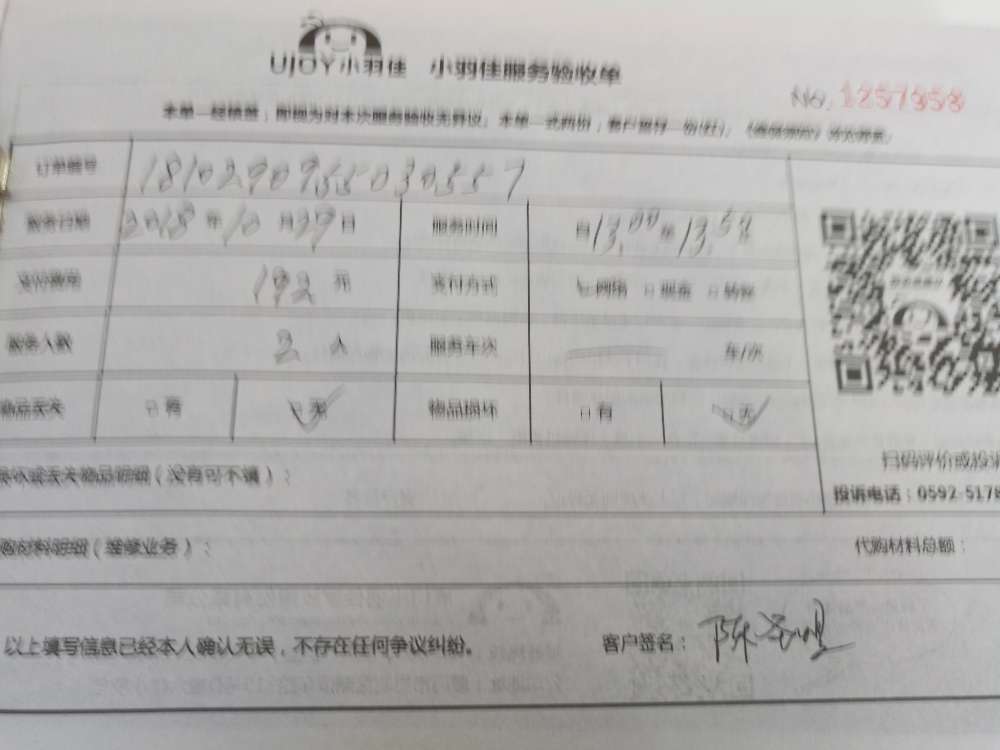 UJOY小羽佳 小羽佳服务验收单
No. 1257958
本单一经填签，即视为对本次服务验收无异议。本单一式两份，客户留存一份(红)，
订单编号 1810290955030557
服务日期 2018年10月29日 服务时间 自13:00至13:58
支付费用 192元 支付方式 网络 现金
服务人数 2人 服务车次 车/次
物品丢失 有 无 物品损坏 有 无
损坏或丢失物品明细（没有可不填）：
扫码评价或投诉
投诉电话：0592-5178
购材料明细（维修业务）： 代购材料总额：
以上填写信息已经本人确认无误，不存在任何争议纠纷。 客户签名：陈